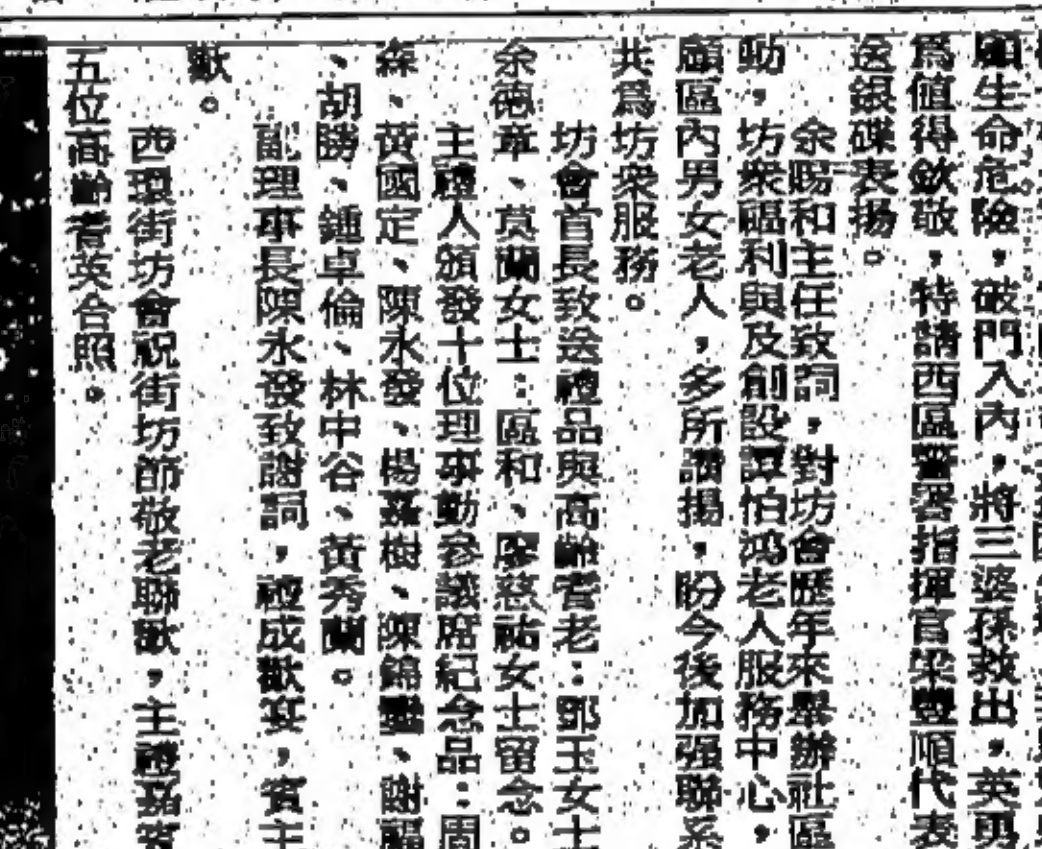 顧生命危險，破門入內，將三婆孫救出，英勇
爲值得欽敬，特請西區警署指揮官梁豐順代表
送銀碟表揚。
余暘和主任致詞，對坊會歷年來舉辦社區
動，坊衆福利與及創設譚怕鴻老人服務中心，
顧區內男女老人，多所讚揚，盼今後加强聯系
共爲坊衆服務。
坊會首長致送禮品與高齡耆老：鄧玉女士
余德章、蘭女士：區和、廖慈祐女士留念。
主禮人頒發十位理事勤參議席紀念品：周
森、黃國定、陳永發、楊樹、陳錦、謝
、胡勝、鍾卓倫、林中谷、黃秀蘭。
副理事長陳永發致謝詞，禮成歡宴，賓主
歡。
西環街坊會祝街坊節敬老聯歡，主禮嘉賓
五位高齡耆英合照。